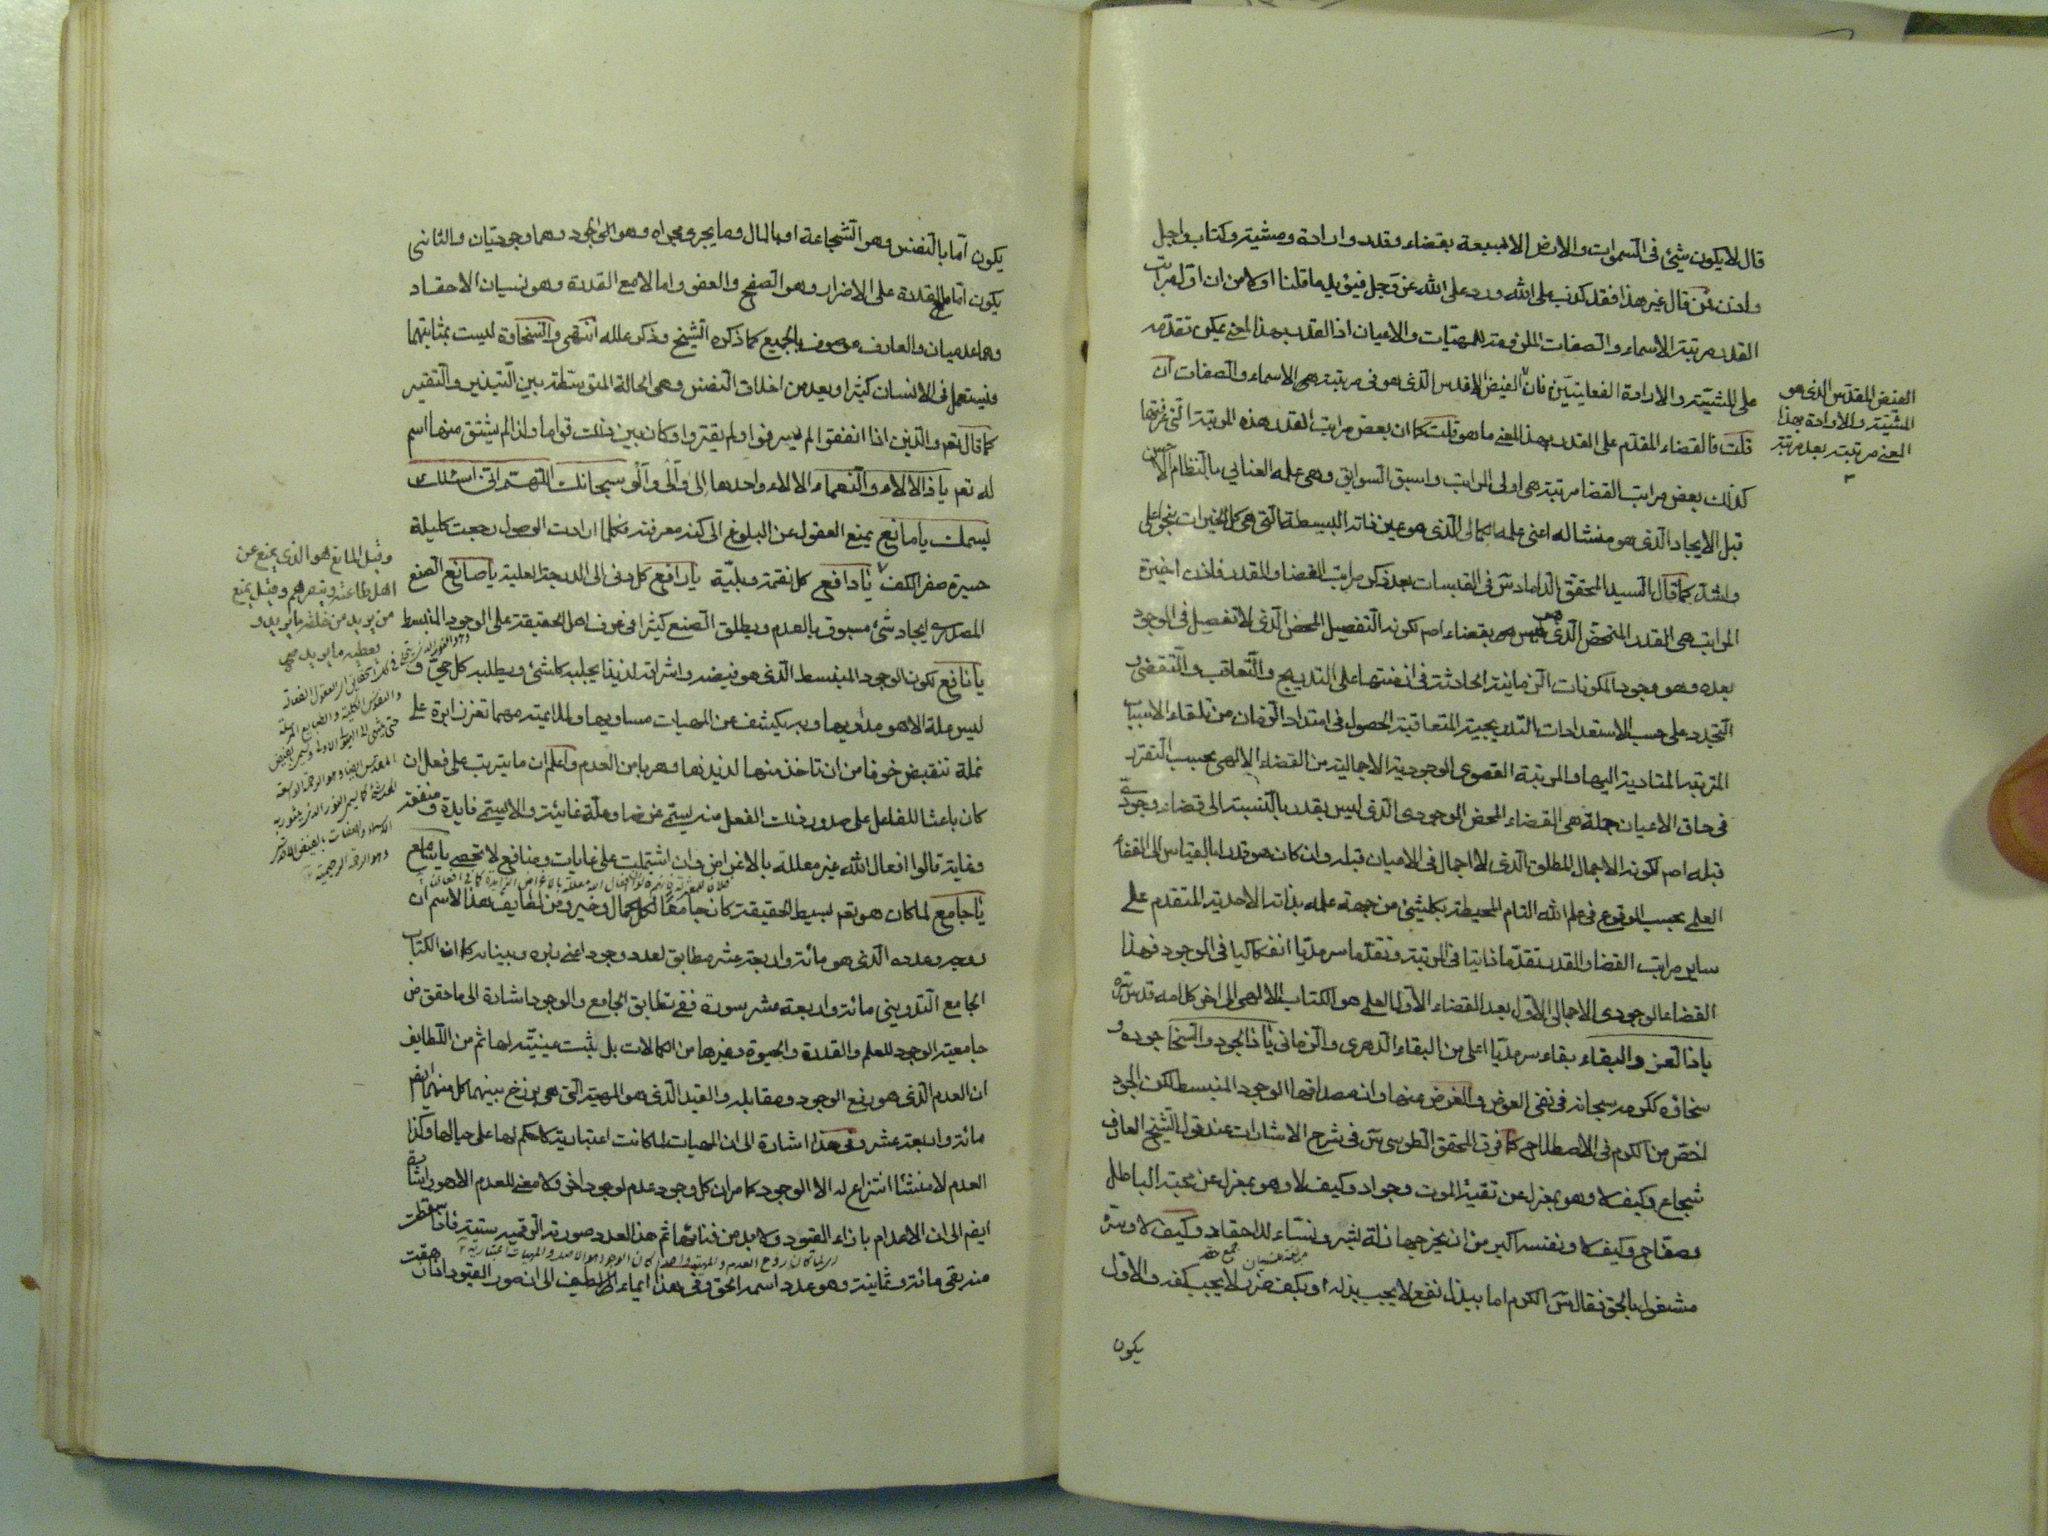 قال لا يكون شيئ فى السموات والارض الا بسبعة بقضاء وقدر وارادة ومشية وكتاب واجل
واذن فمن قال غير هذا فقد كذب على الله ورد على الله عز وجل فيؤيد ما قلنا اولا من ان اول مراتب
القدر مرتبة الاسماء والصفات الملزومة للمهيات والاعيان اذ القدر بهذا المعنى يمكن تقدمه
على المشية والارادة الفعليتين فان الفيض الاقدس الذى هو فى مرتبة هى الاسماء والصفات ان
قلت فالقضاء المقدم على القدر بهذا المعنى ما هو قلت كما ان بعض مراتب القدر هذه المرتبة التى عرفتها
كذلك بعض مراتب القضا مرتبة هى اولى المراتب واسبق السوابق وهى علمه العنايى بالنظام الاحسن
قبل الايجاد الذى هو منشا له اعنى علمه الكمالى الذى هو عين ذاته البسيطة التى هى كل الخيرات بنحو اعلى
واشد كما قال السيد المحقق الداماد س فى القبسات بعد ذكر مراتب القضا والقدر فاذن اخيرة
المراتب هى القدر المتمحض الذى هو ليس بقضاء اصم لكونه التفصيل المحض الذى لا تفصيل فى الوجود
بعده وهو وجود المكونات الزمانية الحادثة فى ازمنتها على التدريج والتعاقب والتقضى و
التجدد على حسب الاستعدادات التدريجية المتعاقبة الحصول فى امتداد الزمان من تلقاء الاسباب
المترتبة المتادية اليها والمرتبة القصوى الوجودية الاجمالية من القضاء الالهى بحسب التقرر
فى حاق الاعيان جملة هى القضاء المحض الوجودى الذى ليس بقدر بالنسبة الى قضاء وجودى
قبله اصم لكونه الاجمال المطلق الذى لا اجمال فى الاعيان قبله وان كان هو قدرا بالقياس الى القضاء
العلمى بحسب الوقوع فى علم الله التام المحيط بكلشيئ من جهة علمه بذاته الاحدية المتقدم على
ساير مراتب القضا والقدر تقدما ذاتيا فى المرتبة وتقدما سرمديا انفكاكيا فى الوجود فهذا
القضاء الوجودى الاجمالى الاول بعد القضاء الاول العلمى هو الكتاب الالهى الى اخر كلامه قدس سره
يا ذا العز والبقاء بقاء سرمديا اعلى من البقاء الدهرى والزمانى يا ذا الجود والسخا جوده و
سخاؤه ككرمه سبحانه فى نفى العوض والغرض منها وان مصداقها الوجود المنبسط لكن الجود
اخص من الكرم فى الاصطلاح كما فرق المحقق الطوسى س فى شرح الاشارات عند قول الشيخ العارف
شجاع وكيف لا وهو بمعزل عن تقية الموت وجواد وكيف لا وهو بمعزل عن محبة الباطل
وصفاح وكيف لا ونفسه اكبر من ان يخرجها زلة بشر ونساء للاحقاد وكيف لا وسره
مشغول بالحق فقال س الكرم اما ببذل نفع لا يجب بذله او بكف ضرر لا يجب كفه والاول
يكون
الفيض المقدس الذى هو
المشية والارادة بهذا
المعنى مرتبته بعد مرتبة
يكون اما بالنفس وهو الشجاعة او بالمال وما يجرى مجراه وهو الجود وهما وجوديان والثانى
يكون اما مع القدرة على الاضرار وهو الصفح والعفو واما لا مع القدرة وهو نسيان الاحقاد
وهما عدميان والعارف موصوف بالجميع كما ذكره الشيخ وذكر علله انتهى والسخاوة ليست بمثابتهما
فيستعمل فى الانسان كثيرا ويعد من اخلاق النفس وهى الحالة المتوسطة بين التبذير والتقتير
كما قال تعم والذين اذا انفقوا لم يسرفوا ولم يقتروا وكان بين ذلك قواما ولذا لم يشتق منها اسم
له تعم يا ذا الالاء والنعماء الالاء واحدها الى والى والو سبحانك اللهم انى اسئلك
بسمك يا مانع يمنع العقول عن البلوغ الى كنه معرفته فكلما ارادت الوصول رجعت كليلة
حسيرة صفر الكف يا دافع كل نقمة وبلية يا رافع كل دنى الى الدرجة العلية يا صانع الصنع
المصدرى ايجاد شئ مسبوق بالعدم ويطلق الصنع كثيرا فى عرف اهل الحقيقة على الوجود المنبسط
يا نافع لكون الوجود المنبسط الذى هو فيضه واشراقه لذيذا يجلبه كلشئ ويطلبه كل حى و
ليس ملة الا هو مداويها وبه يكشف عن المهيات مساويها ولملايمته مهما تغرز ابرة على
نملة تنقبض خوفا من ان تاخذ منها لذيذها وهربا من العدم واعلم ان ما يترتب على فعل ان
كان باعثا للفاعل على صدور ذلك الفعل منه يسمى غرضا وعلة غائية والا يسمى فايدة ومنفعة
وغاية قالوا افعال الله غير معللة بالاغراض وان اشتملت على غايات ومنافع لا تحصى يا سامع
يا جامع لما كان هو تعم بسيط الحقيقة كان جامعا لكل كمال وخير ومن لطايف هذا الاسم ان
روحه وعدده الذى هو مائة واربعة عشر مطابق لعدد وجود اعنى زبره وبيناته كما ان الكتاب
الجامع التدوينى مائة واربعة عشر سورة ففى تطابق الجامع والوجود اشارة الى ما حقق من
جامعية الوجود للعلم والقدرة والحيوة وغيرها من الكمالات بل يثبت عينيته لها ثم من اللطايف
ان العدم الذى هو رفع الوجود ومقابله والقيد الذى هو المهية التى هى برزخ بينهما كل منهما ايضم
مائة واربعة عشر وفى هذا اشارة الى ان المهيات لما كانت اعتبارية لا حكم لها على حيالها وكذا
العدم لا منشا انتزاع له الا الوجود كما مر ان كل وجود عدم لوجود اخر ولا معنى للعدم الا هو
ايضم الى ان الاعدام بازاء القيود ولا بد من فنائها ثم هذا العدد صورته الرقمية ستة فاذا سقطت
منه بقى مائة وثمانية وهو عدد اسمه الحق وفى هذا ايماء لطيف الى ان صور القيود اذا
وقيل المانع هو الذى يمنع عن
اهل طاعته وينصرهم وقيل يمنع
من يريد من خلقه ما يريد و
يعطيه ما يريد